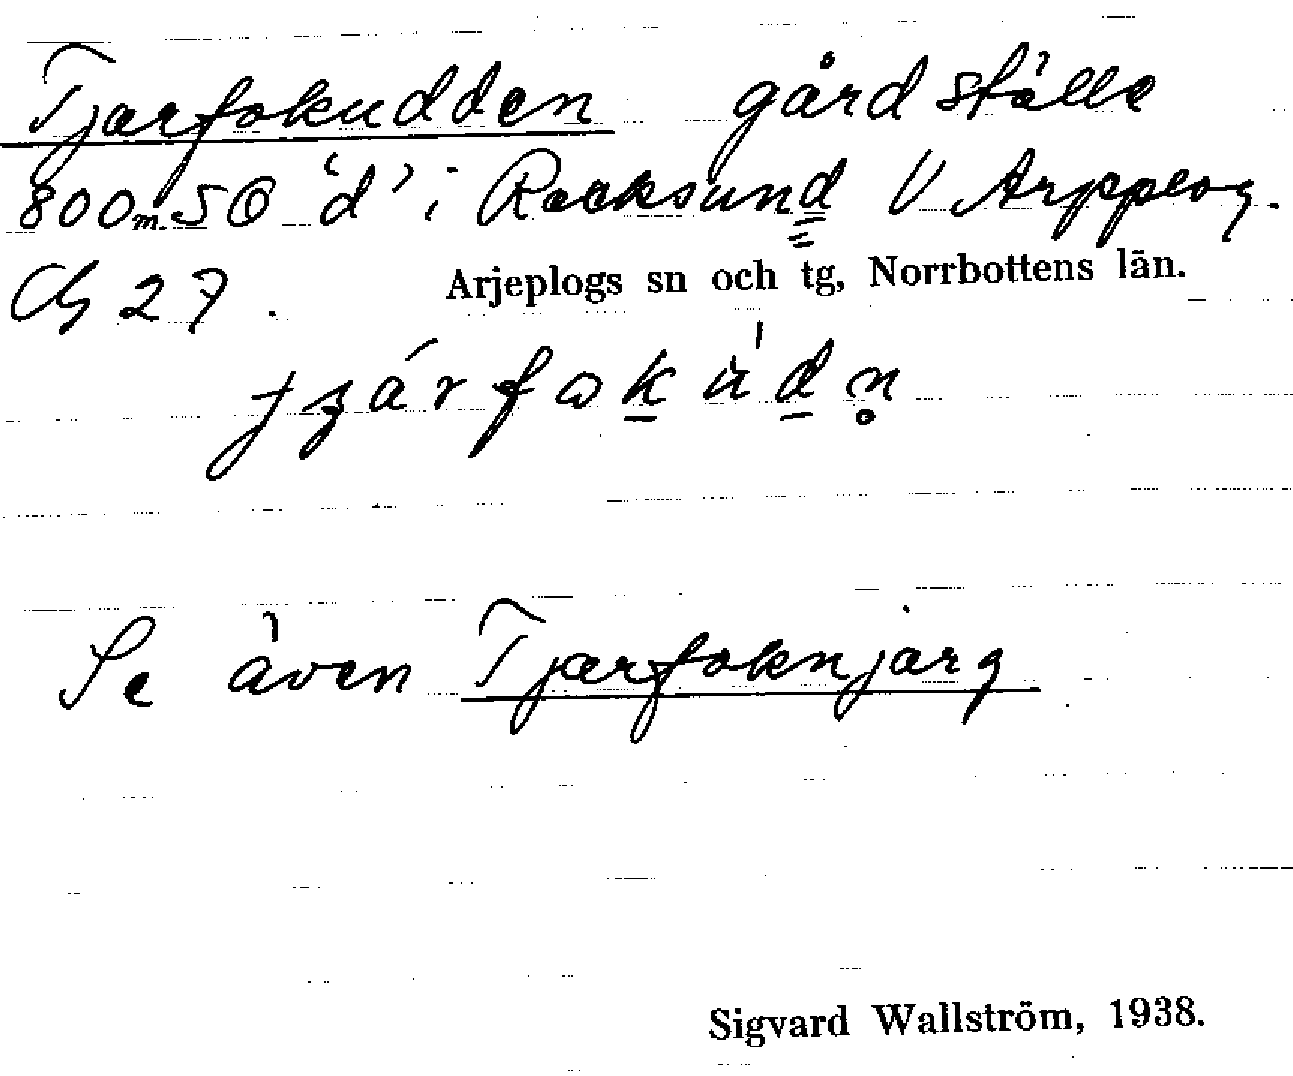 Tjarfokudden gårdställe
800 m. SO 'd' i Racksund V Arjeplog.
Ch 27.
Arjeplogs sn och tg, Norrbottens län.
Se även Tjarfoknjarg
Sigvard Wallström, 1938.